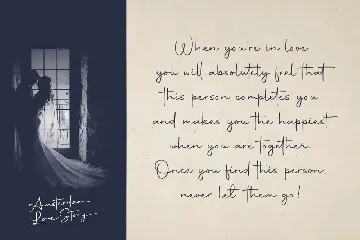 Amsterdam
Love Story
When you're in love
you will absolutely feel that
this person completes you
and makes you the happiest
when you are together.
Once you find this person,
never let them go!